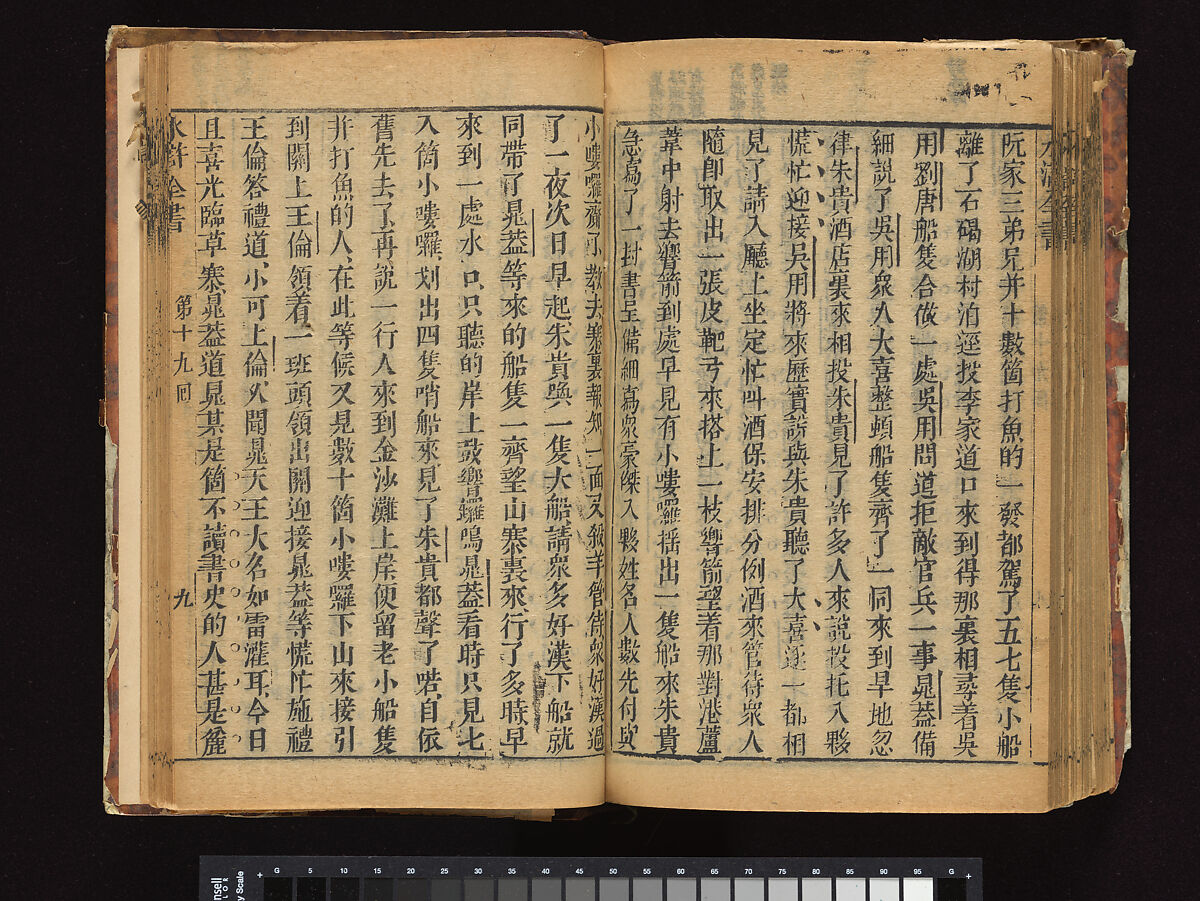 阮家三弟兄并十數箇打魚的一發都駕了五七隻小船
離了石碣湖村泊逕投李家道口來到得那裏相尋着吳
用劉唐船隻合做一處吳用問道拒敵官兵一事晁葢備
細說了吳用衆人大喜整頓船隻齊了一同來到旱地忽
律朱貴酒店裏來相投朱貴見了許多人來說投托入夥
慌忙迎接吳用將來歷實說與朱貴聽了大喜逐一都相
見了請入廳上坐定忙叫酒保安排分例酒來管待衆人
隨卽取出一張皮靶弓來搭上一枝響箭望着那對港蘆
葦中射去響箭到處早見有小嘍囉搖出一隻船來朱貴
急寫了一封書呈備細寫衆豪傑入夥姓名人數先付與
小嘍囉齎了教去寨裏報知一面又殺羊管待衆好漢過
了一夜次日早起朱貴喚一隻大船請衆多好漢下船就
同帶了晁葢等來的船隻一齊望山寨裏來行了多時早
來到一處水口只聽的岸上鼓響鑼鳴晁葢看時只見七
八箇小嘍囉划出四隻哨船來見了朱貴都聲了喏自依
舊先去了再說一行人來到金沙灘上岸便留老小船隻
并打魚的人在此等候又見數十箇小嘍囉下山來接引
到關上王倫領着一班頭領出關迎接晁葢等慌忙施禮
王倫答禮道小可王倫久聞晁天王大名如雷灌耳今日
且喜光臨草寨晁葢道晁某是箇不讀書史的人甚是麄
水滸全書
第十九回
九
G 5 10 15 20 25 30 35 40 45 50 55 60 65 70 75 80 85 90 95 G